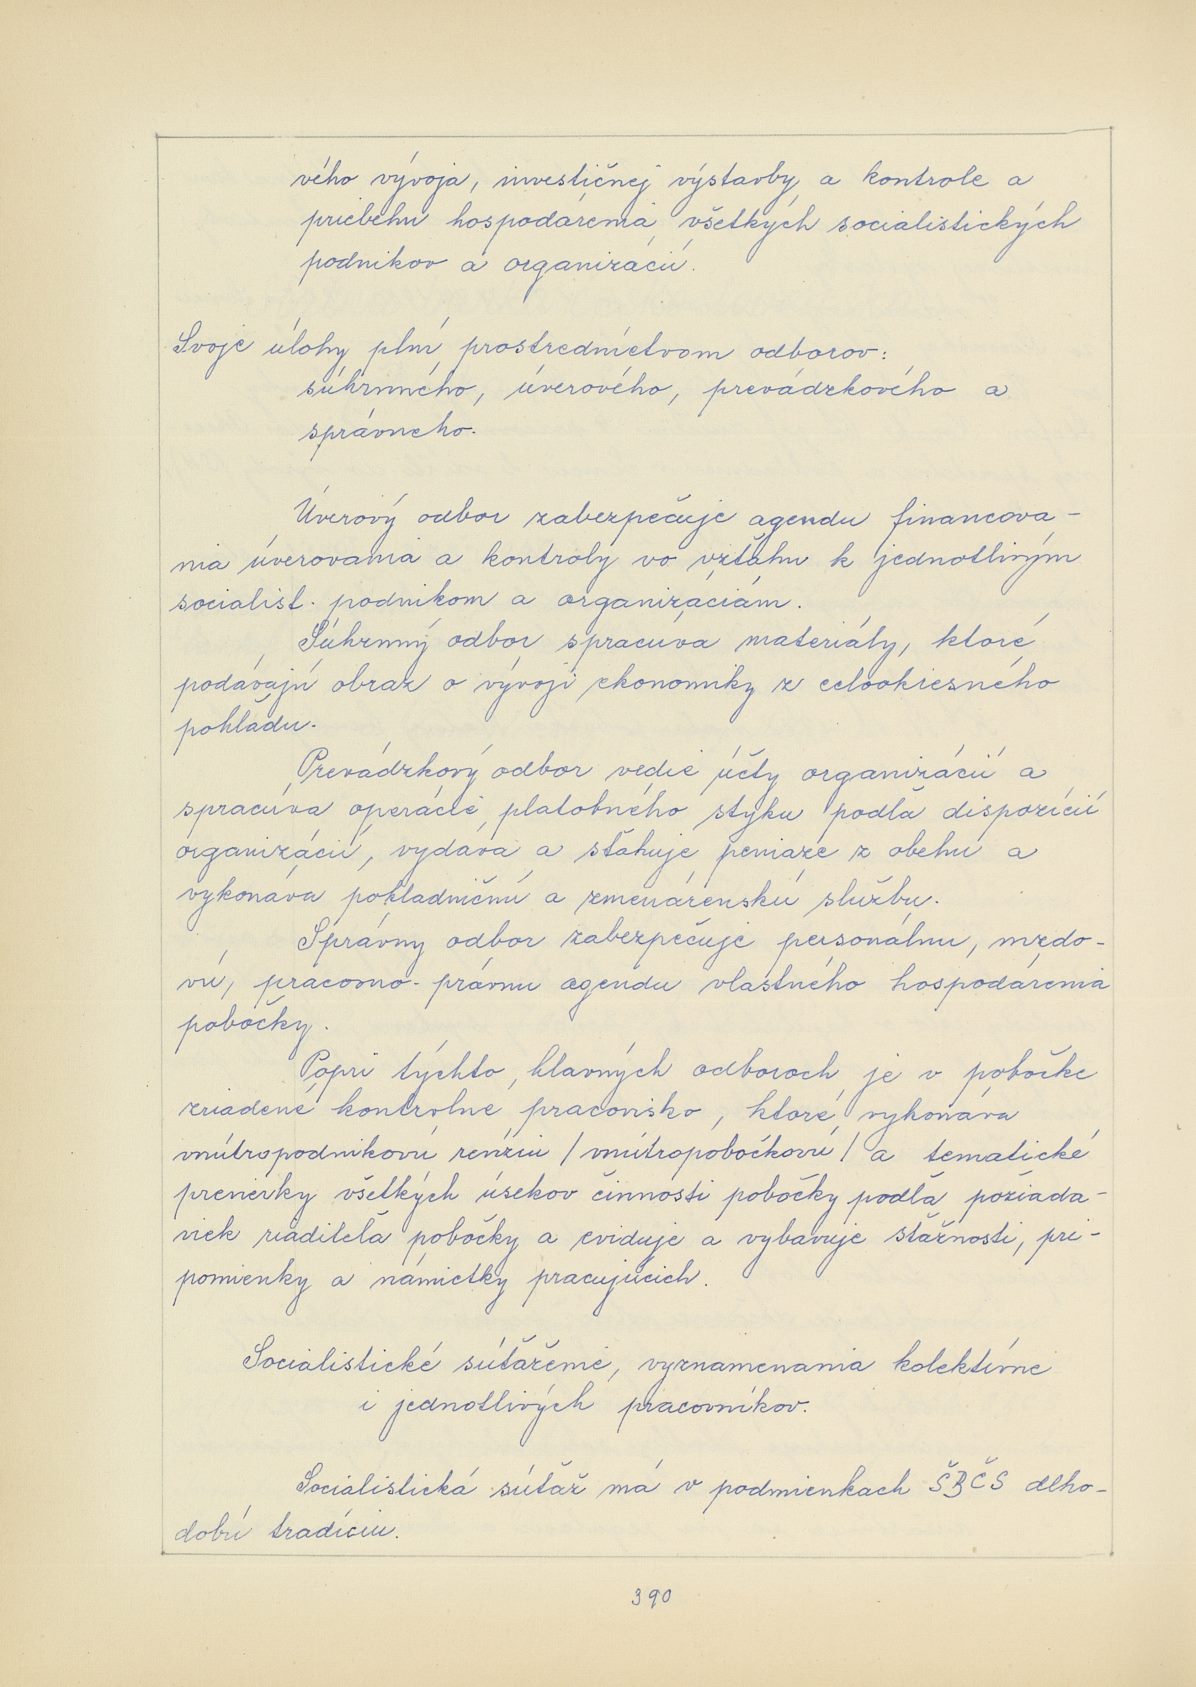 vého vývoja, investičnej výstavby a kontrole a
priebehu hospodárenia všetkých socialistických
podnikov a organizácií.
Svoje úlohy plní prostredníctvom odborov:
súhrnného, úverového, prevádzkového a
správneho.
Úverový odbor zabezpečuje agendu financova-
nia úverovania a kontroly vo vzťahu k jednotlivým
socialist. podnikom a organizáciám.
Súhrnný odbor spracúva materiály, ktoré
podávajú obraz o vývoji ekonomiky z celookresného
pohľadu.
Prevádzkový odbor vedie účty organizácií a
spracúva operácie platobného styku podľa dispozícií
organizácií, vydáva a sťahuje peniaze z obehu a
vykonáva pokladničnú a zmenárenskú službu.
Správny odbor zabezpečuje personálnu, mzdo-
vú, pracovno-právnu agendu vlastného hospodárenia
pobočky.
Popri týchto hlavných odboroch je v pobočke
zriadené kontrolné pracovisko, ktoré vykonáva
vnútropodnikovú revíziu /vnútropobočkovú/ a tematické
previerky všetkých úsekov činnosti pobočky podľa požiada-
viek riaditeľa pobočky a eviduje a vybavuje sťažnosti, pri-
pomienky a námietky pracujúcich.
Socialistické súťaženie, vyznamenania kolektívne
i jednotlivých pracovníkov.
Socialistická súťaž má v podmienkach ŠBČS dlho-
dobú tradíciu.
390